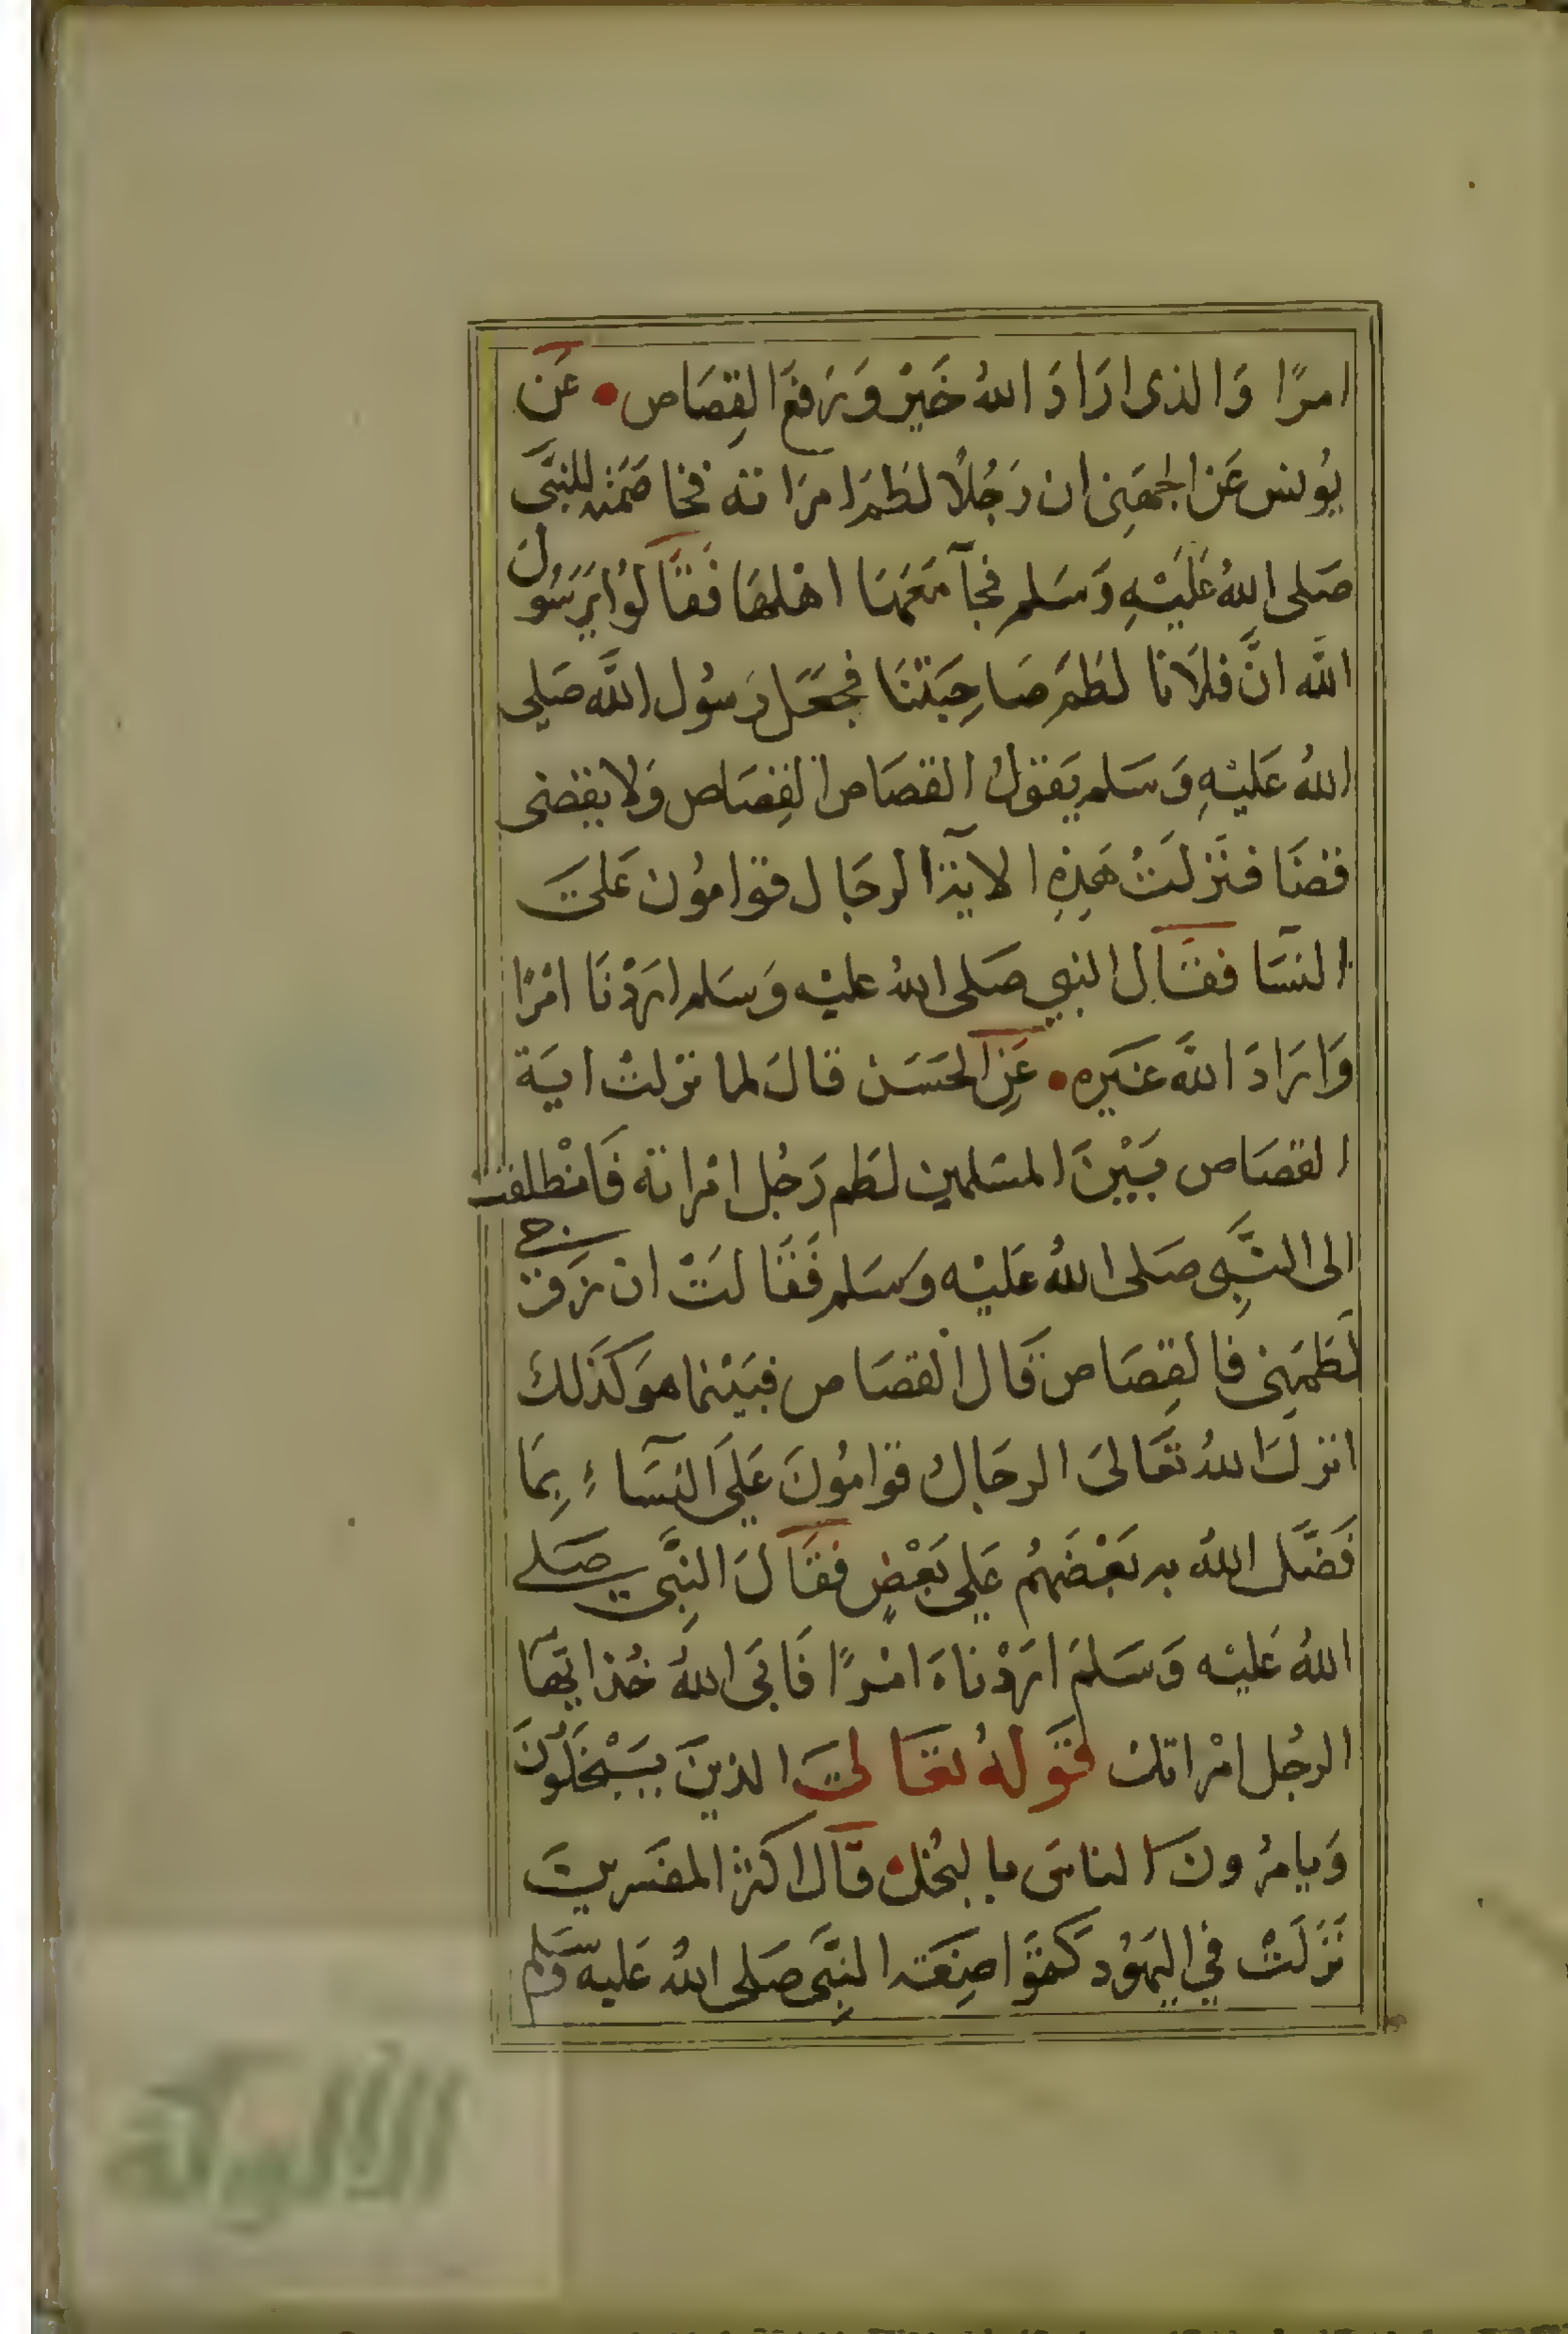 امرًا وَالذى ارَادَ اللهُ خَيْر وَرَفعَ القِصَاص • عَن
يُونس عَن الحسَن ان رَجُلًا لطَمَ امرَاته فخاصَمَته للنبَّى
صَلى اللهُ عَليْهِ وَسَلم فجآ مَعَهَا اهْلهَا فَقَالوُا يَرسُولَ
اللَّه انَّ فلَانا لطَمَ صَاحِبَتنَا فجعَل رَسُول اللَّه صَلى
اللهُ عَليْهِ وَسَلم يَقولُ القصَاص القِصَاص وَلا يقضى
قضَا فنَزلَتْ هَذِهِ الاية الرجَال قوامُون عَلىَ
النسَا فقَال النبي صَلى اللهُ عليْه وَسَلم ارَدْنَا امْرًا
وَارَادَ اللَّه غيَره • عَنِ الحَسَن قالَ لما نزلتْ ايَة
القصَاص بَيْنَ المسَلمين لطَم رَجُل امْراته فَانْطلقت
الى النَّبِى صَلى اللهُ عَليْه وَسَلم فَقَالَتْ ان زَوجى
لَطَمَنِى فالقِصَاص قَال القصَاص فبَيْنما هوَ كذَلك
انزلَ اللهُ تعَالىَ الرجَالُ قوامُونَ عَلَى النسَآءِ بِمَا
فَضَّل اللهُ به بَعْضَهُم عَلى بَعْضٍ فقَالَ النِبَّى صَلى
اللهُ عَليْه وَسَلمَ ارَدْنَا امْرًا فَابَى اللهُ خُذ ايهَا
الرجُل امْراتك قَولهُ تعَالىَ الذينَ يَبْخَلُونَ
وَيامرُونَ الناسَ بالبُخل • قال اكثر المفسَرين
نَزلَتْ في اليَهوُد كتموَا صِفَة النِبَّى صَلى اللهُ عَليه وَسَلم
الألوكة